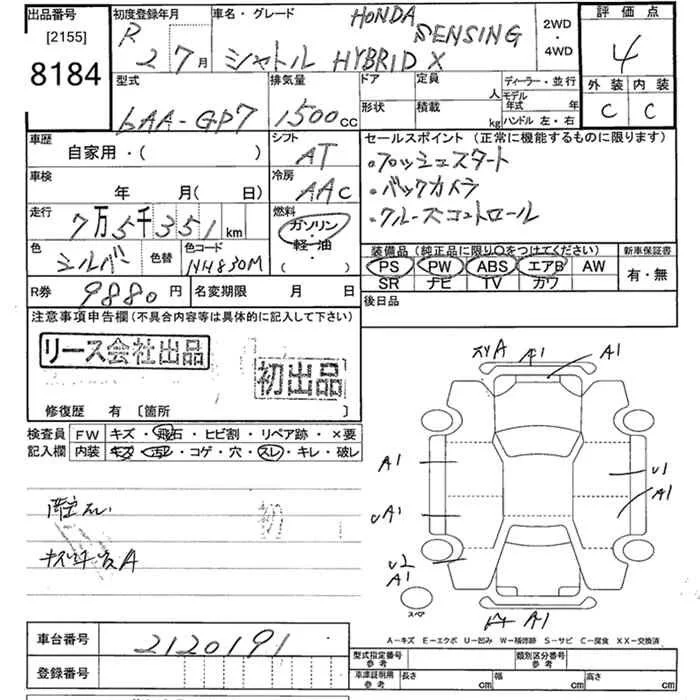 出品番号
[2155]
8184
初度登録年月
R 2 7月
車名・グレード
HONDA SENSING
シャトル HYBRID X
2WD
・
4WD
評価点
4
外装 内装
C C
型式
6AA-GP7
排気量
1500cc
ドア 定員 人
形状 積載 kg
ディーラー・並行
モデル年式 年
ハンドル 左・右
車歴
自家用・( )
シフト
AT
セールスポイント (正常に機能するものに限ります)
・プッシュスタート
・バックカメラ
・クルーズコントロール
車検
年 月( 日)
冷房
AAC
走行
7万5千351km
燃料
ガソリン
・
軽・油
( )
色
シルバー
色替
色コード
NH830M
装備品 (純正品に限り〇をつけてください)
PS PW ABS エアB AW
SR ナビ TV カワ
新車保証書
有・無
R券 9880円
名変期限 月 日
後日品
注意事項申告欄(不具合内容等は具体的に記入して下さい)
リース会社出品
初出品
修復歴 有 [箇所 ]
検査員記入欄
FW キズ・飛石・ヒビ割・リペア跡・×要
内装 キズ・汚レ・コゲ・穴・スレ・キレ・破レ
初
A
A A1 A1
A1 U1
UA1 A1
U2
A1
スペア
A1
A-キズ E-エクボ U-凹み W-補修跡 S-サビ C-腐食 XX-交換済
車台番号
2120191
登録番号
型式指定番号 参考
類別区分番号 参考
車庫証明用 参考
長さ cm 幅 cm 高さ cm